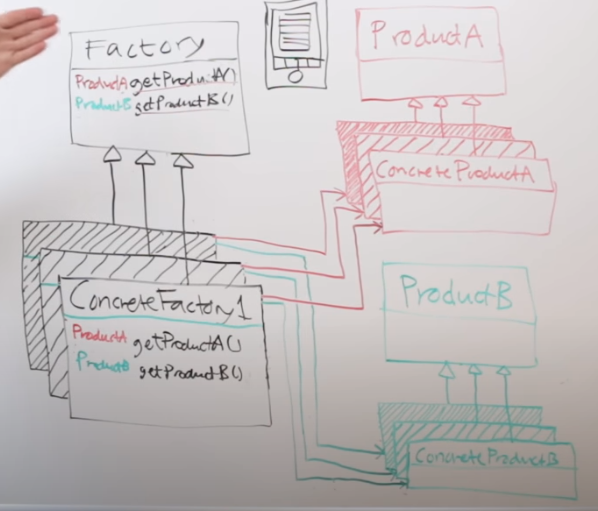 Factory
ProductA getProductA()
ProductB getProductB()
ProductA
ConcreteProductA
ConcreteFactory1
ProductA getProductA()
ProductB getProductB()
ProductB
ConcreteProductB